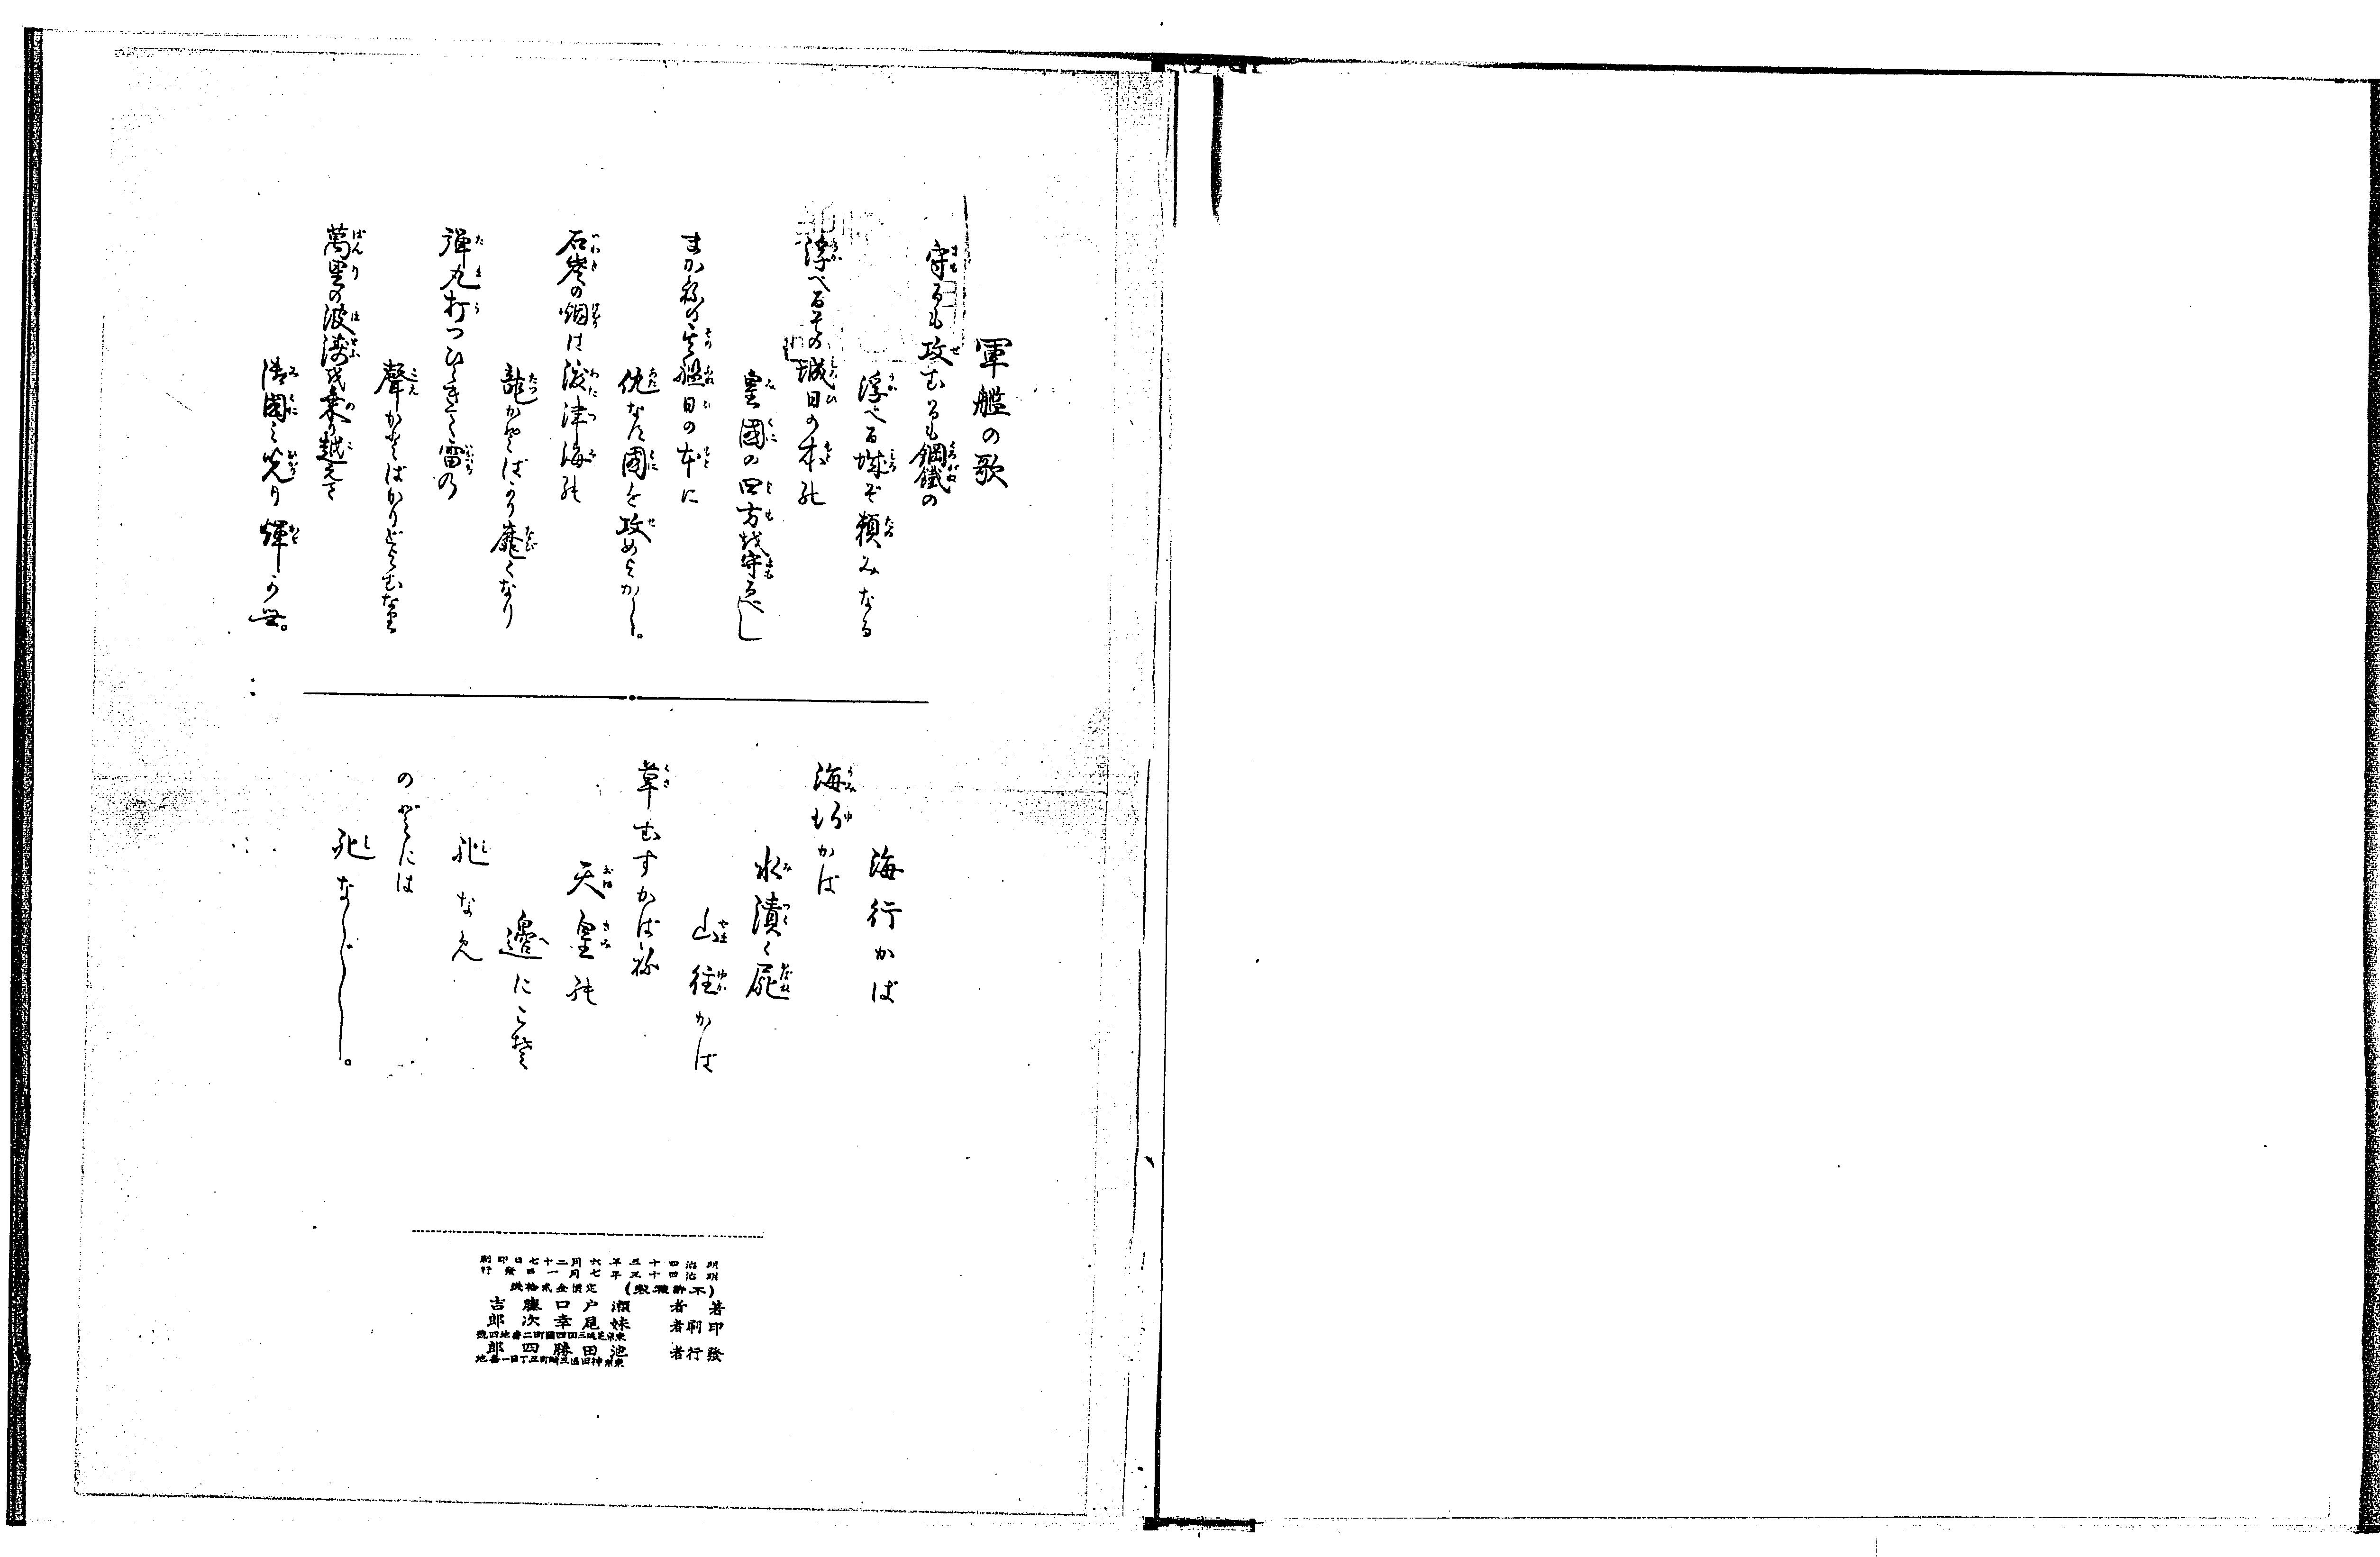 軍艦の歌
守るも攻むるも鋼鐵の
浮べる城ぞ頼みなる
浮べるその城日の本の
皇國の四方を守るべし
まがねの其艦日の本に
仇なす國を攻めよかし。
石炭の烟は渡津海の
龍かとばかり靡くなり
弾丸打つひびきは雷の
聲かとばかりどよむなり
萬里の波濤を乗り越えて
御國之光り輝かせ。
海行かば
海行かば
水漬く屍
山往かば
草むすかばね
天皇の
邊にこそ
死なめ
のどには
死なじ。
明治四十三年六月二十七日印刷
明治四十三年七月一日發行
(不許複製) 定價金貳拾錢
著者 瀬戸口藤吉
印刷者 妹尾幸次郎
東京芝區三田四國町二番地四號
發行者 池田勝四郎